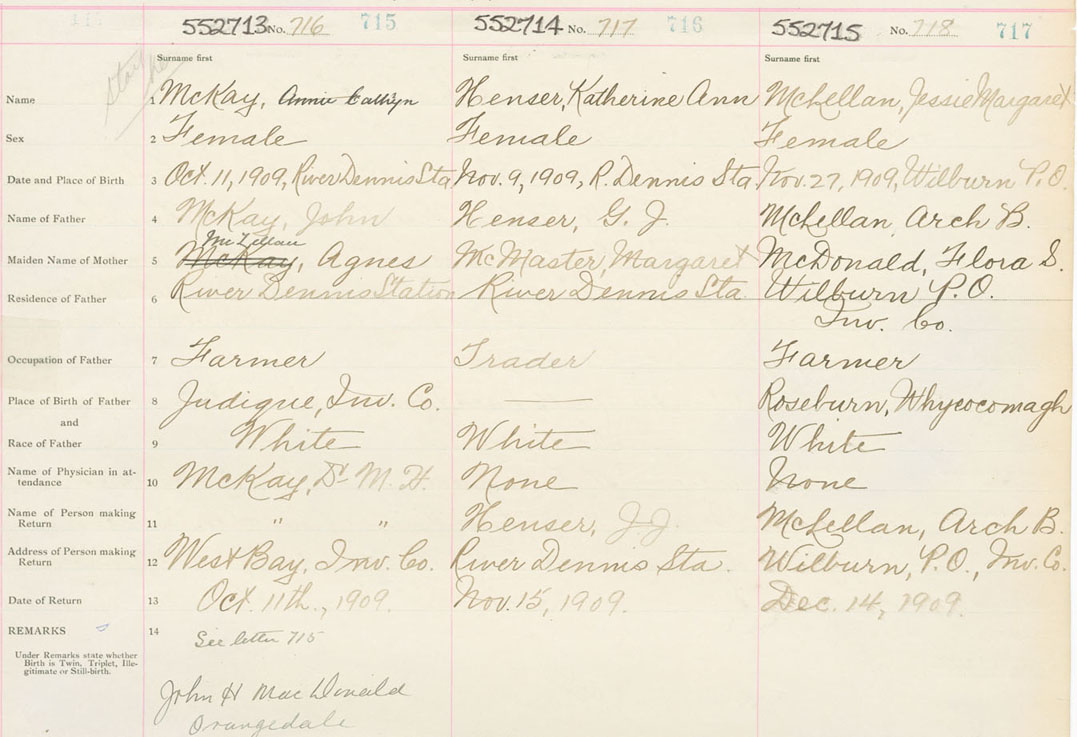 552713 No. 716 715 552714 No. 717 716 552715 No. 718 717
Surname first Surname first Surname first
Name 1 McKay, Annie Cathryn Henser, Katherine Ann McLellan, Jessie Margaret
Sex 2 Female Female Female
Date and Place of Birth 3 Oct. 11, 1909, River Dennis Sta Nov. 9, 1909, R. Dennis Sta. Nov. 27, 1909, Wilburn P.O.
Name of Father 4 McKay, John Henser, G. J. McLellan, Arch B.
McLellan
Maiden Name of Mother 5 McKay, Agnes McMaster, Margaret McDonald, Flora S.
Residence of Father 6 River Dennis Station River Dennis Sta. Wilburn P.O.
Inv. Co.
Occupation of Father 7 Farmer Trader Farmer
Place of Birth of Father 8 Judique, Inv. Co. —— Roseburn, Whycocomagh
and
Race of Father 9 White White White
Name of Physician in at-
tendance 10 McKay, Dr M. H. None None
Name of Person making
Return 11 " " Henser, J.J. McLellan, Arch B.
Address of Person making
Return 12 West Bay, Inv. Co. River Dennis Sta. Wilburn, P.O., Inv. Co.
Date of Return 13 Oct. 11th., 1909. Nov. 15, 1909. Dec. 14, 1909.
REMARKS 14 See letter 715
Under Remarks state whether
Birth is Twin, Triplet, Ille-
gitimate or Still-birth.
John H MacDonald
Orangedale